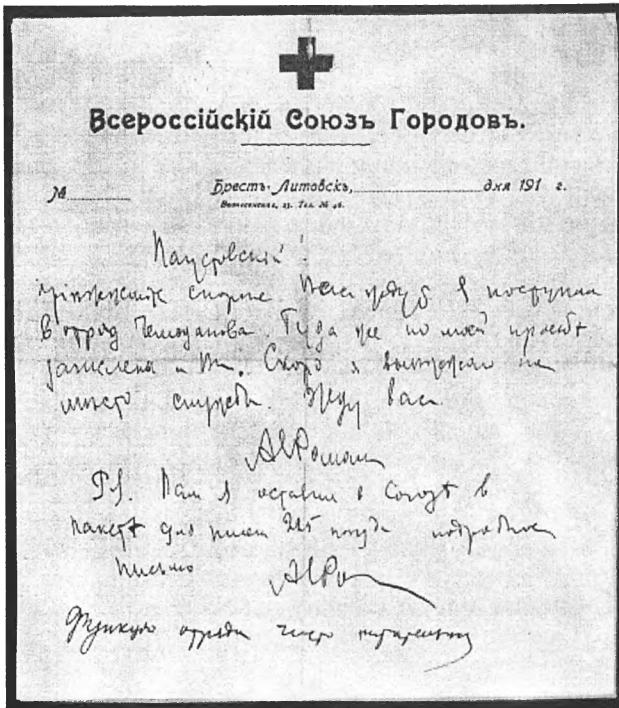 Всероссійскій Союзъ Городовъ.
№ Брестъ-Литовскъ, дня 191 г.
Вознесенская, 23. Тел. № 46.
Паустовскій!
пріѣзжайте скорее. Васъ ждутъ Я поступил
в отряд Чемоданова. Туда же по моей просьбѣ
зачислены и Вы. Скоро я выезжаю на
место службы Жду Васъ
P.S. Вам я оставил в Союзѣ в
пакетѣ для писем подробное
письмо
отряда чисто